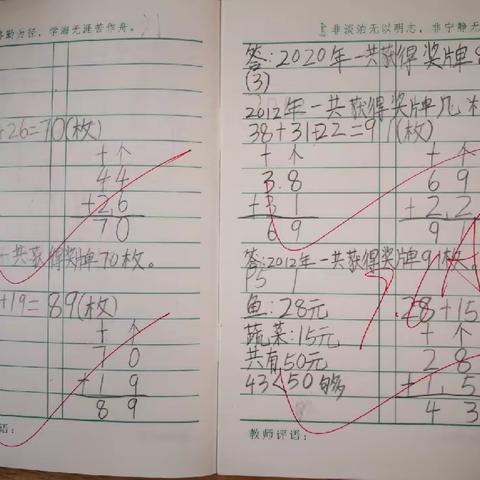 勤为径，学海无涯苦作舟。
+26=70(枚)
十 个
4 4
+2 6
7 0
一共获得奖牌70枚。
+19=89(枚)
十 个
7 0
+1 9
8 9
评语：
非淡泊无以明志，非宁静无
答:2020年一共获得奖牌
(3)
2012年一共获得奖牌几
38+31+22=91(枚)
十 个 十 个
3 8 6 9
+3 1 +2 2
6 9 9 1
答:2012年一共获得奖牌91枚。
P5 1
鱼:28元 28+15
蔬菜:15元 十 个
共有50元 2 8
43<50 够 +1 5
4 3
教师评语：